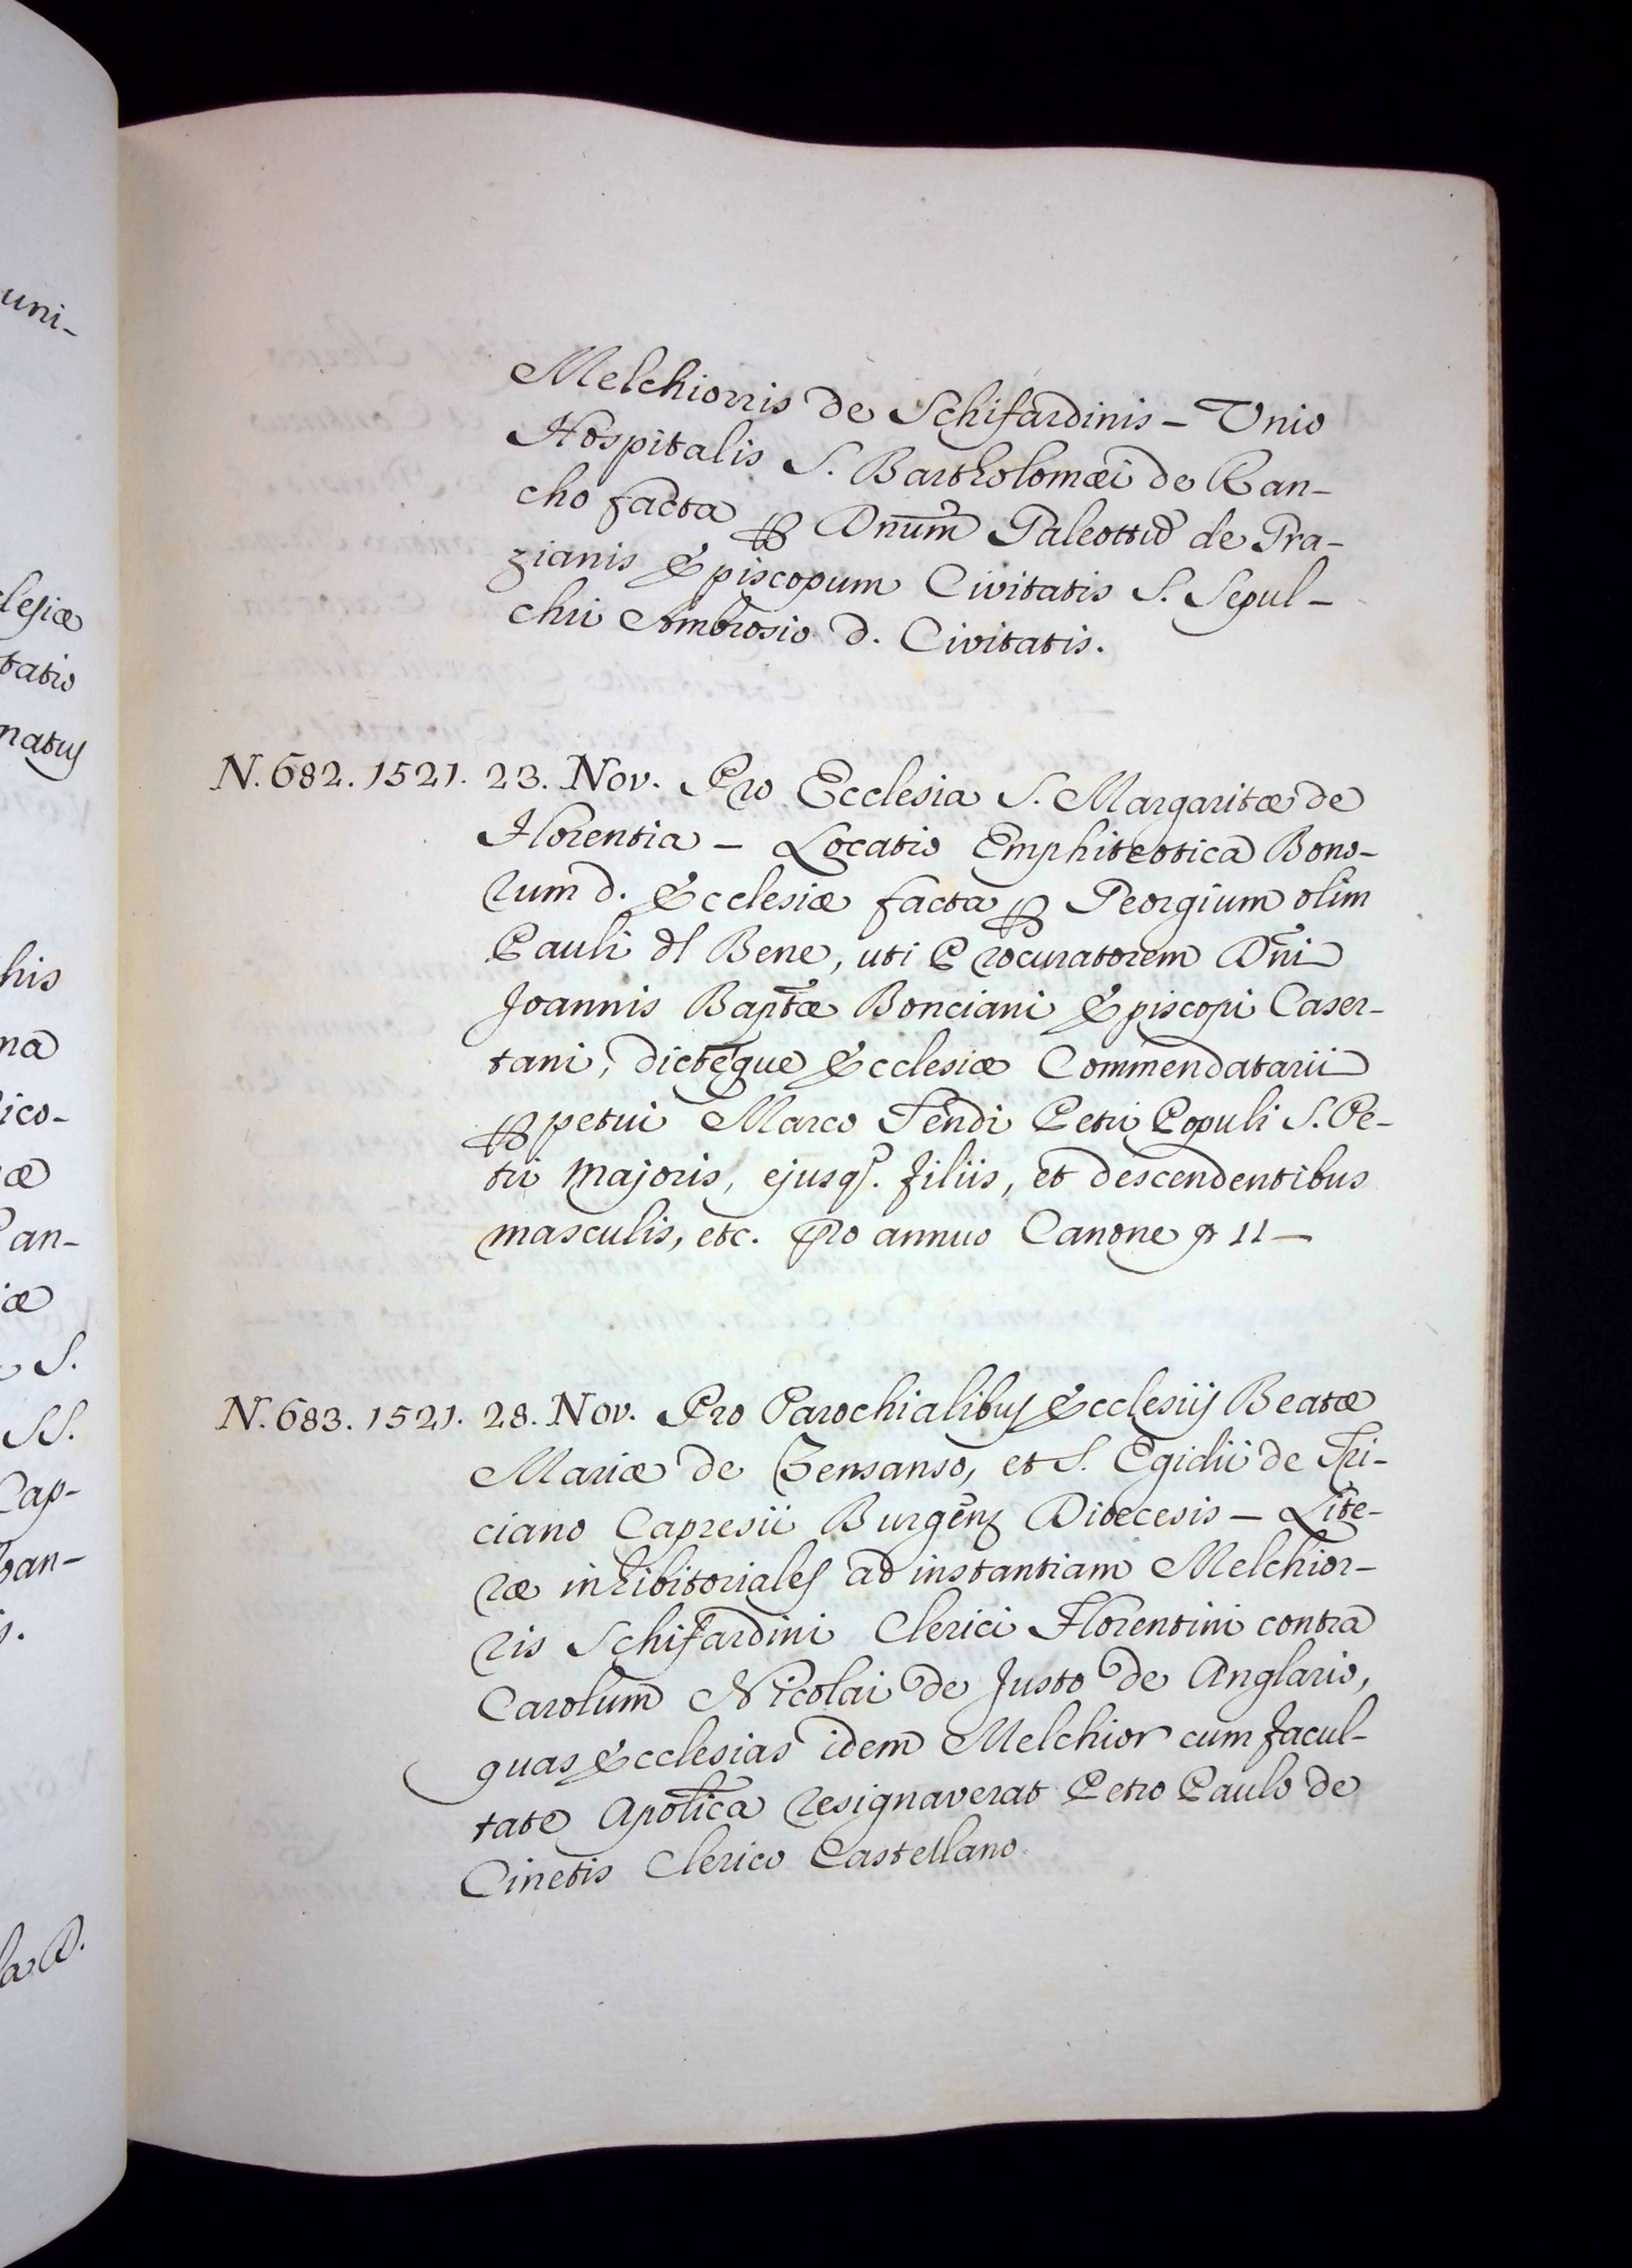 uni-
lesiæ
tatio
natus
his
na
ico-
æ
an-
iæ
S.
SS.
Cap-
ban-
s.
la D.
Melchiorris de Schifardinis - Unio
Hospitalis S. Bartholomæi de Ran-
cho facta ꝑ Dnum̃ Galeottũ de Gra-
zianis Episcopum Civitatis S. Sepul-
chri Ambrosio d. Civitatis.
N. 682. 1521. 23. Nov. Pro Ecclesia S. Margaritæ de
Florentia - Locatio Emphiteotica Bono-
rum d. Ecclesiæ facta ꝑ Georgium olim
Pauli dl Bene, uti Procuratorem Dñi
Joannis Bapt̃æ Bonciani Episcopi Caser-
tani, dictęque Ecclesiæ Commendatarii
ꝑpetui Marco Fendi Petri Populi S. Pe-
tri Majoris, ejusq̃. filiis, et descendentibus
masculis, etc. Pro annuo Canone 11 -
N. 683. 1521. 28. Nov. Pro Parochialibus Ecclesiis Beatæ
Mariæ de Zensanso, et S. Egidii de Fri-
ciano Capresii Burgẽnz Dioecesis - Lite-
ræ inhibitoriales ad instantiam Melchior-
ris Schifardini Clerici Florentini contra
Carolum Nicolai de Justo de Anglario,
quas Ecclesias idem Melchior cum facul-
tate Apol̃ica resignaverat Petro Paulo de
Cinetis Clerico Castellano.